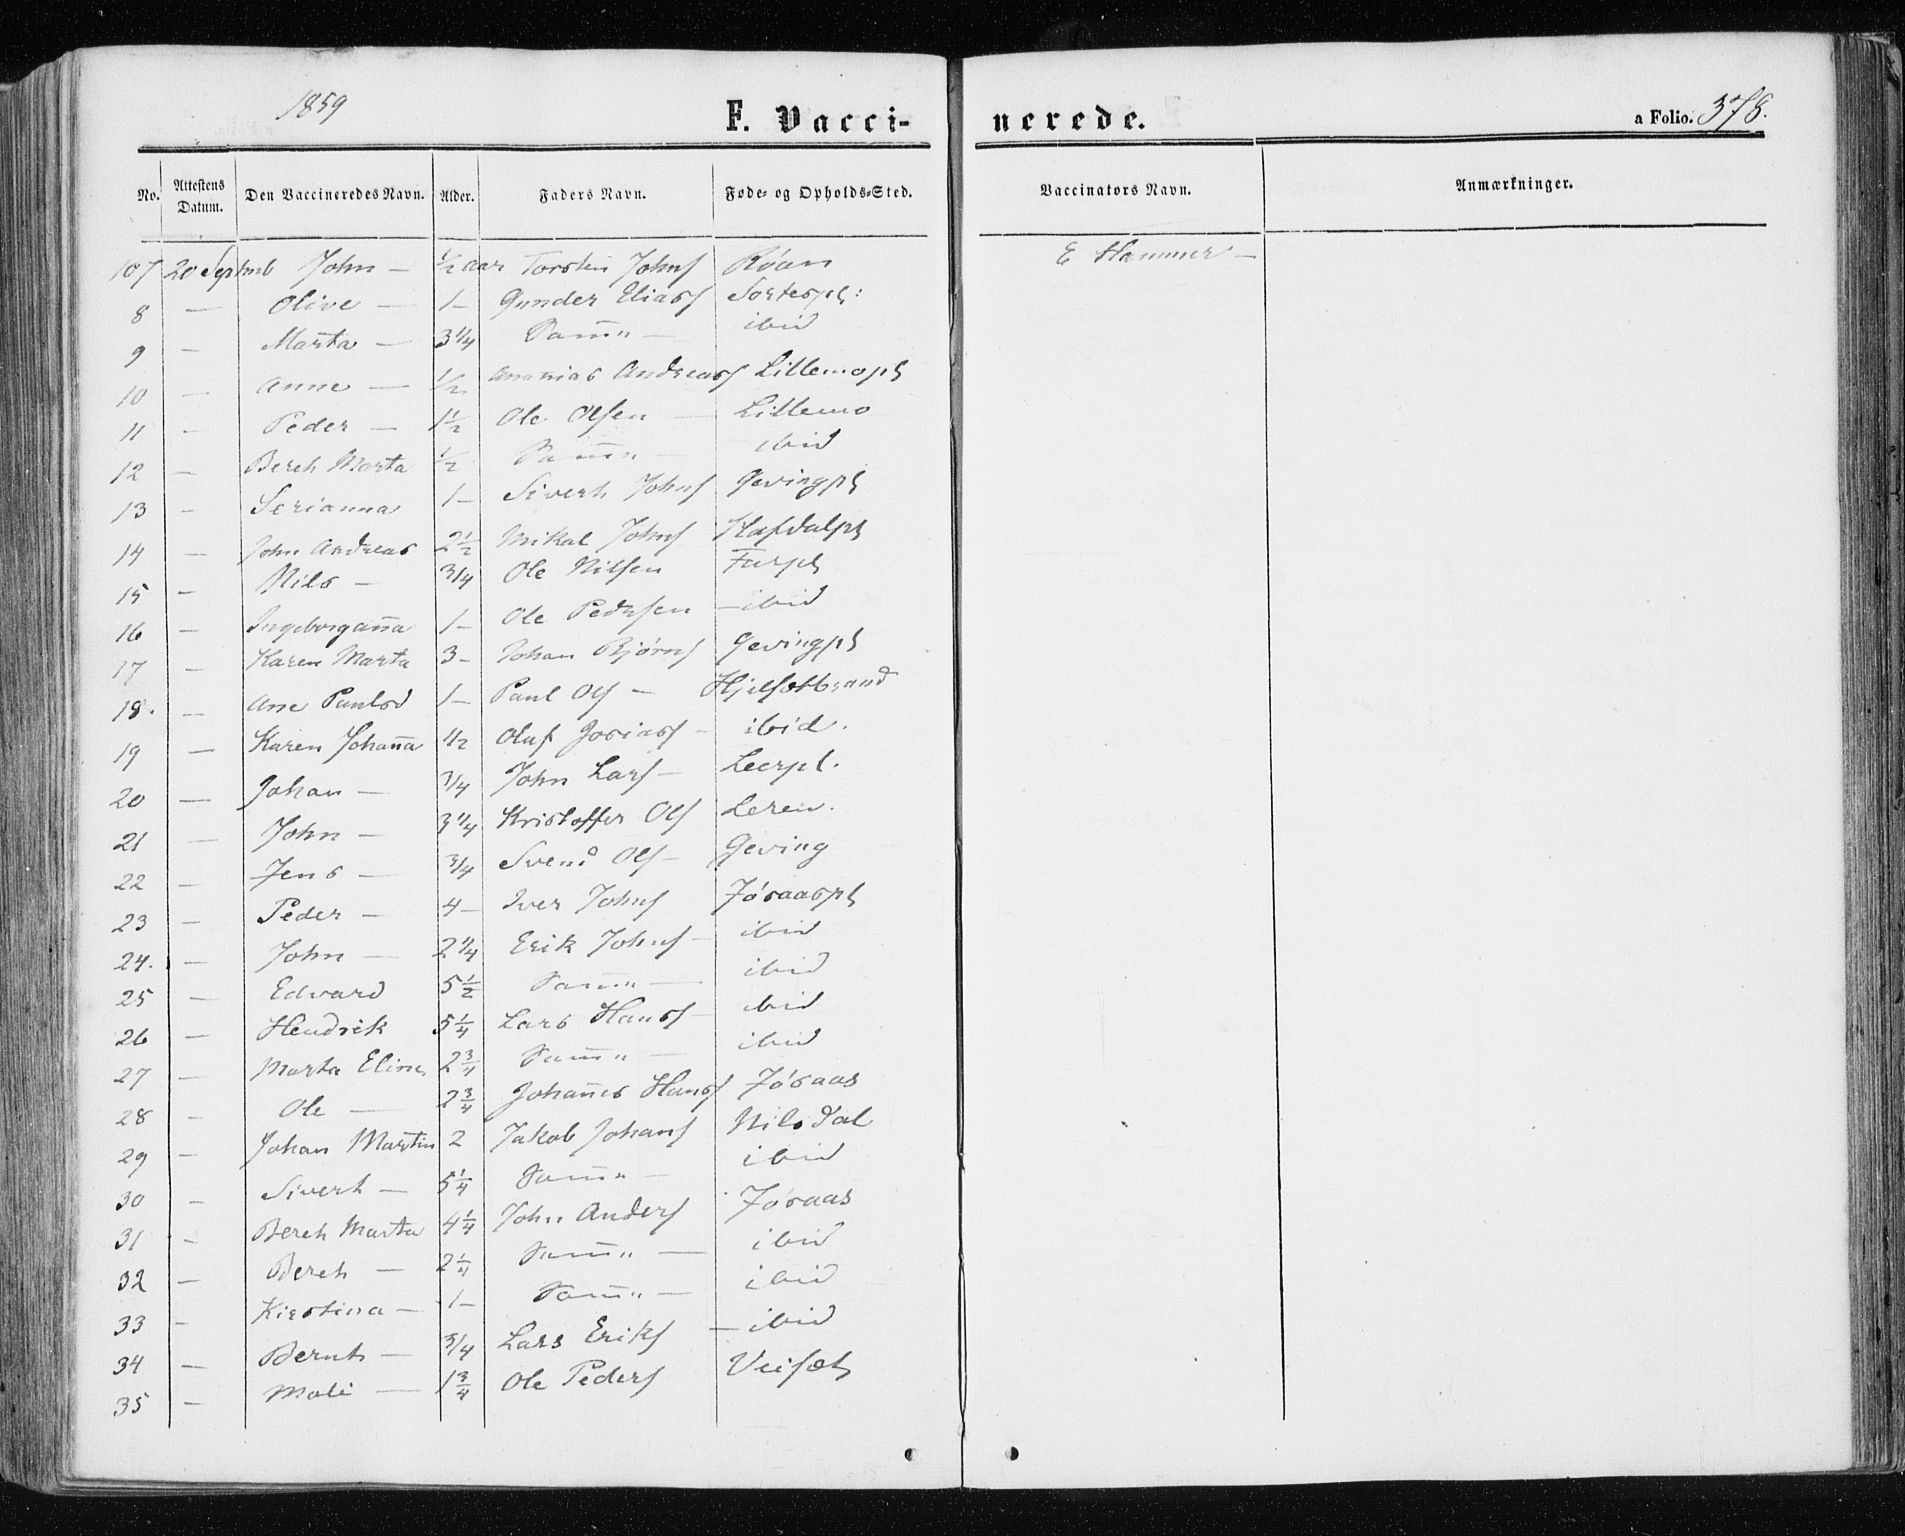 1859
F. Vaccinerede.
a Folio. 378.
No. Attestens Datum. Den Vaccineredes Navn. Alder. Faders Navn. Føde- og Opholds-Sted. Vaccinators Navn. Anmærkninger.
107 20 Septmb John — ½ aar Torsten Johns Røan E Hammer —
8 — Olive — 1 — Gunder Elias Sortespl:
9 — Marta — 3 1/4 Sam̅ " — ibid
10 — Anne — ½ Ananias Andreas Lillemopl
11 — Peder — 1½ Ole Olsen — Lillemo
12 — Bereh Marta ½ Sam̅ " — ibid
13 — Serianna 1 — Siverh Johns Gevingpl
14 — John Andreas 2½ Mikal Johns Hafdalpl
15 — Nils — 3/4 Ole Nilsen Furpl
16 — Ingeborgan̅a 1 — Ole Pedersen — ibid
17 — Karen Marta 3 — Johan Bjørns Gevingpl
18. — Ane Paulsd 1 — Paul Ols — Hjelsetbrand
19 — Karen Johan̅a 1/2 Olaf Josias — ibid.
20 — Johan — 3/4 John Lars — Leerpl.
21 — John — 3 1/4 Kristoffer Ols Leren.
22 — Jens — 3/4 Svend Ols — Geving
23 — Peder — 4 — Iver Johns Føraaspl
24. — John — 2 1/4 Erik Johns — ibid
25 — Edvard 5½ Sam̅ " — ibid
26 — Hendrik 5¼ Lars Hans — ibid
27 — Marta Eline 2¾ Sam̅ " — ibid
28 — Ole — 2¾ Johan̅es Hans Føraas
29 — Johan Martin 2 Jakob Johans Nilsdal
30 — Siverh — 5¼ Sam̅ " — ibid
31 — Bereh Marta 4¼ John Anders Føraas
32 — Bereh — 2¼ Sam̅ " — ibid
33 — Kirstina — 1 — Sam̅ " — ibid
34 — Bernh — 3/4 Lars Eriks — ibid
35 — Mali — 1¾ Ole Peders Veiset